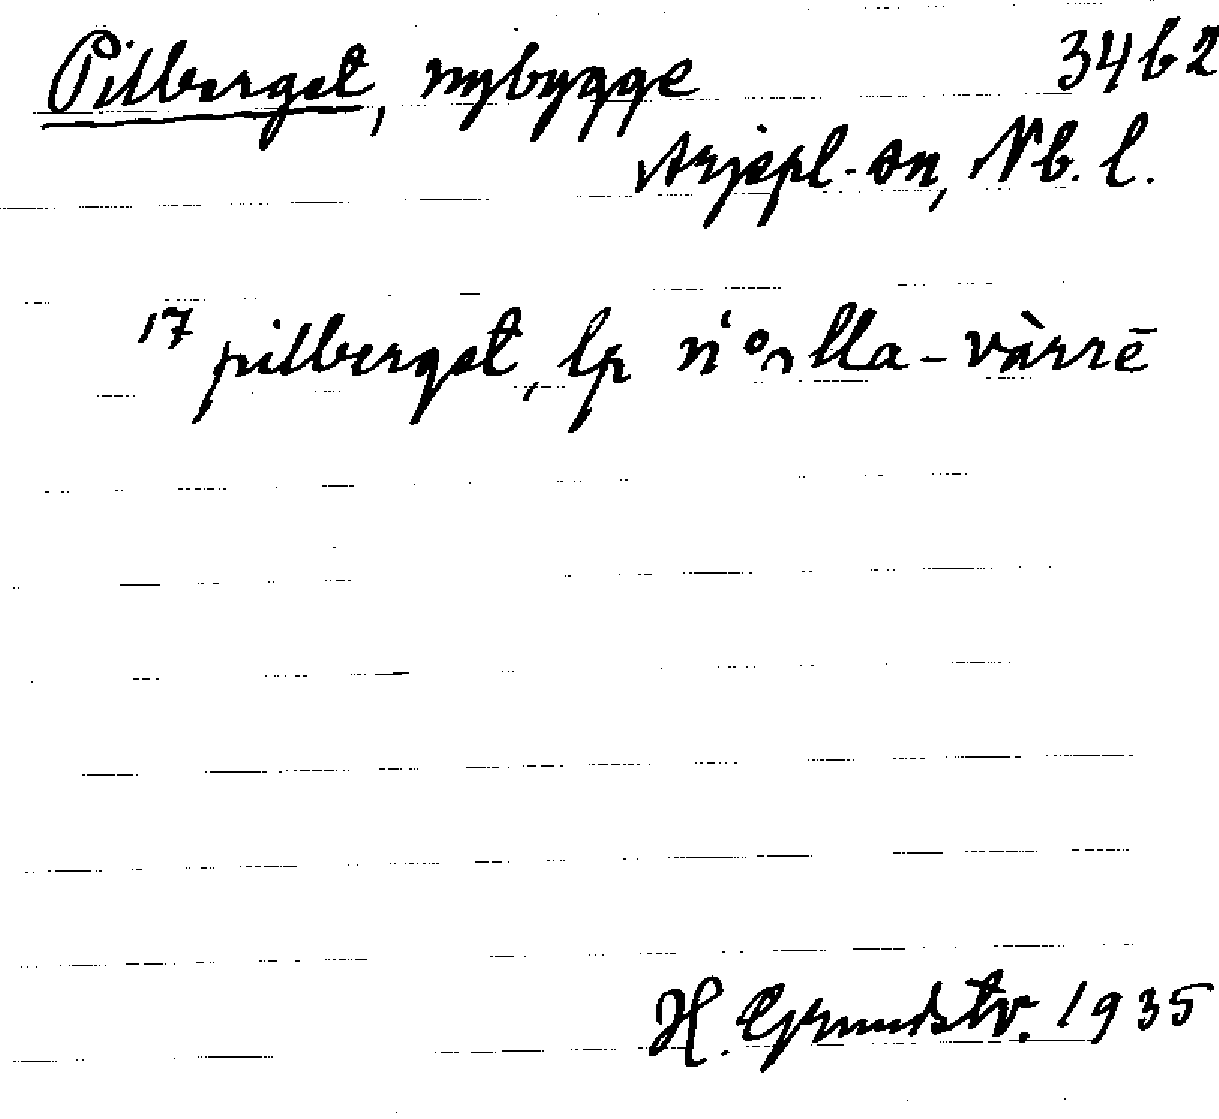 Pilberget, nybygge 3462
Arjepl. sn, Nb. l.
17 pilberget, lp -vàrrē
H. Grundstr. 1935